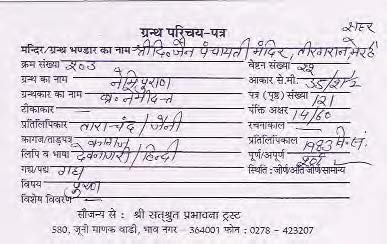 सदर
ग्रन्थ परिचय-पत्र
मन्दिर/ग्रन्थ भण्डार का नाम श्री दि० जैन पंचायती मंदिर, तीरगरान, मेरठ
क्रम संख्या २०३ वेष्टन संख्या २२
ग्रन्थ का नाम नेमिपुराण आकार से.मी.
ग्रन्थकार का नाम ब्र० नेमीदत्त पत्र (पृष्ठ) संख्या 121
टीकाकार पंक्ति अक्षर 14/60
प्रतिलिपिकार ताराचंद / जैनी रचनाकाल
कागज/ताड़पत्र कागज प्रतिलिपिकाल 1983 वि.सं.
लिपि व भाषा देवनागरी / हिन्दी पूर्ण/अपूर्ण पूर्ण
गद्य/पद्य गद्य स्थिति : जीर्ण/अति जीर्ण/सामान्य
विषय पुराण
विशेष विवरण
सौजन्य से : श्री सत्श्रुत प्रभावना ट्रस्ट
580, जूनी माणेक वाडी, भाव नगर - 364001 फोन : 0278 - 423207